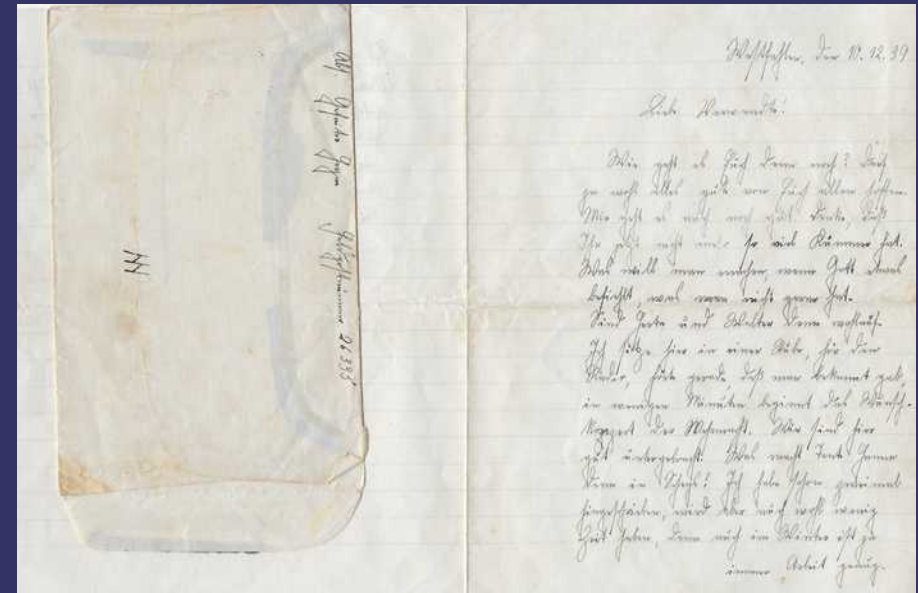 Abs. Gefreiter Feldpostnummer 26335
Westfahlen, den 10.12.39
Liebe Verwandte!
Wie geht es Euch denn noch? Darf
ja wohl alles gute von Euch allen hoffen.
Mir geht es auch noch gut. Denke, daß
Ihr jetzt nicht mehr so viel Kummer hat.
Was will man machen wenn Gott etwas
befiehlt, was man nicht gerne hat.
Sind und Walter denn wohlauf.
Ich sitze hier in einer Stube, für den
Radio, höre gerade, daß man bekannt gab,
in wenigen Minuten beginnt das Wunsch-
konzert der Wehrmacht. Wir sind hier
gut untergebracht. Was macht Tante
denn in ? Ich habe schon zweimal
hingeschrieben, wird aber auch wohl wenig
Zeit haben, denn auch im Winter ist ja
immer Arbeit genug.